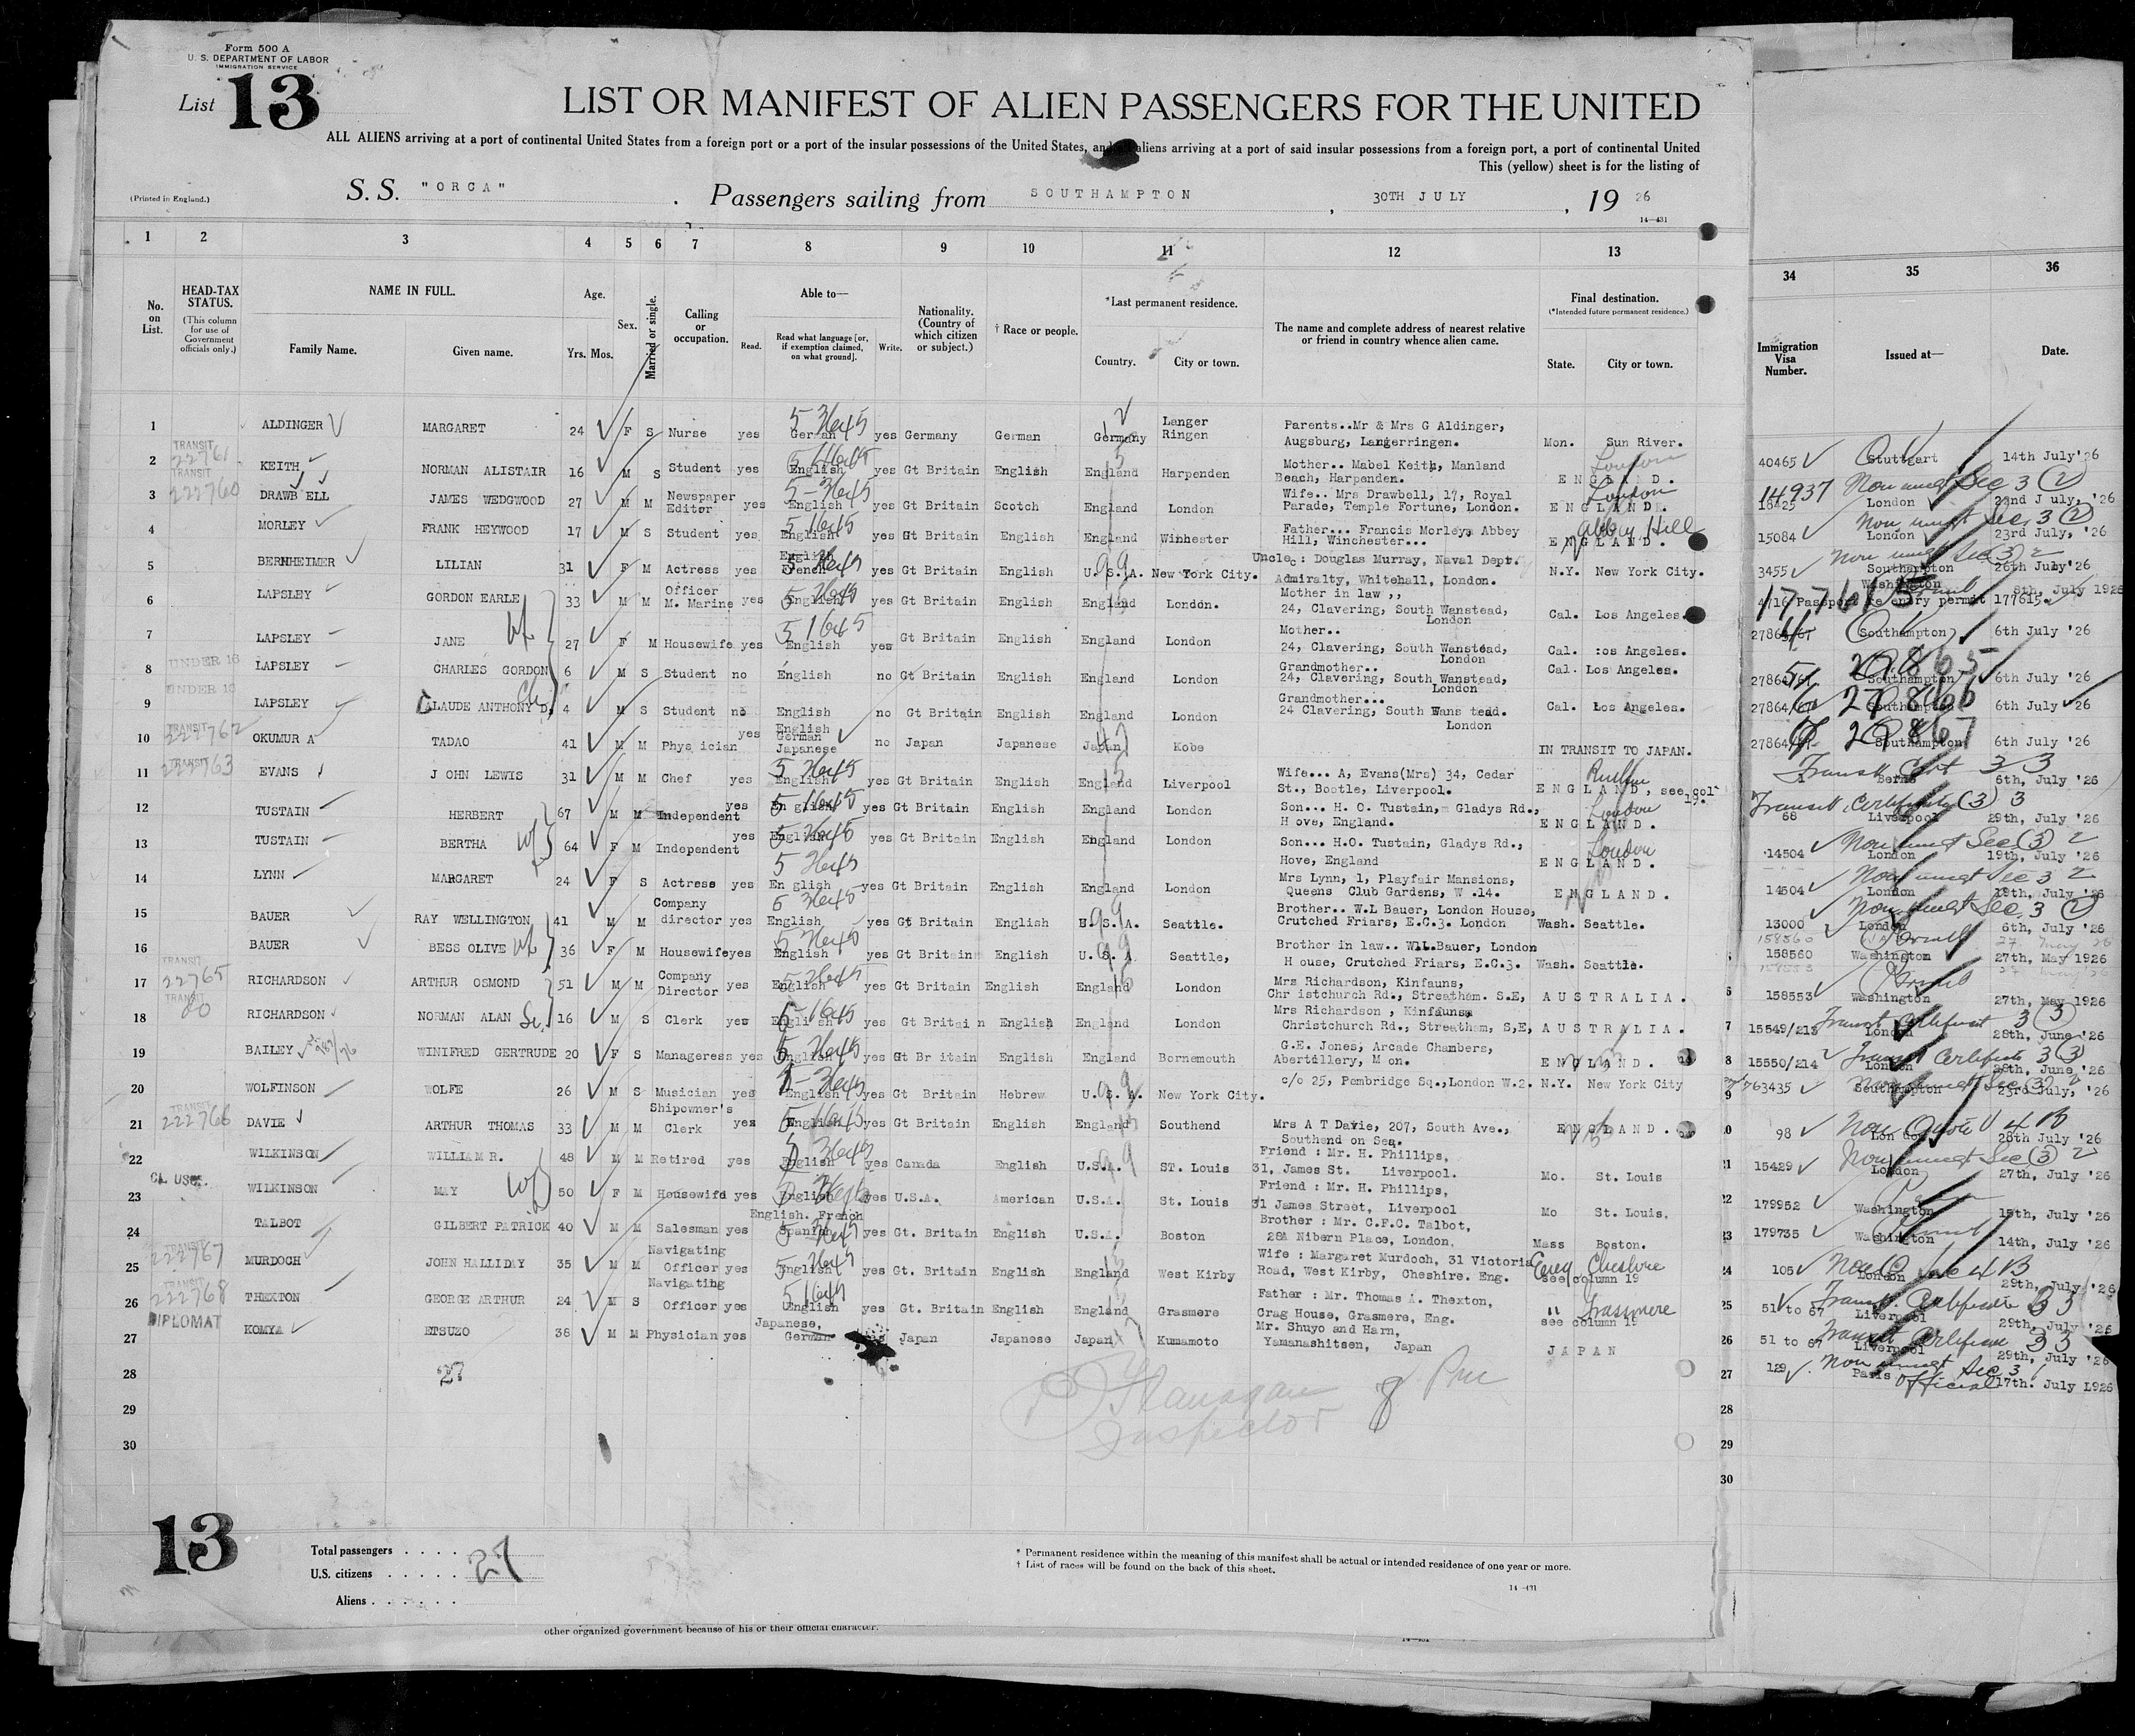 Form 500 A
U. S. DEPARTMENT OF LABOR
IMMIGRATION SERVICE
List 13
LIST OR MANIFEST OF ALIEN PASSENGERS FOR THE UNITED
ALL ALIENS arriving at a port of continental United States from a foreign port or a port of the insular possessions of the United States, and aliens arriving at a port of said insular possessions from a foreign port, a port of continental United
This (yellow) sheet is for the listing of
(Printed in England.)
S. S. "ORCA" . Passengers sailing from SOUTHAMPTON , 30TH JULY , 19 26
14—431
1 2 3 4 5 6 7 8 9 10 11 12 13 34 35 36
No. on List.
HEAD-TAX STATUS.
(This column for use of Government officials only.)
NAME IN FULL.
Family Name. Given name.
Age.
Yrs. Mos.
Sex.
Married or single.
Calling or occupation.
Able to—
Read.
Read what language [or, if exemption claimed, on what ground].
Write.
Nationality. (Country of which citizen or subject.)
† Race or people.
*Last permanent residence.
Country. City or town.
The name and complete address of nearest relative or friend in country whence alien came.
Final destination.
(*Intended future permanent residence.)
State. City or town.
Immigration Visa Number.
Issued at—
Date.
1 ALDINGER MARGARET 24 F S Nurse yes German yes Germany German Germany Langer Ringen Parents..Mr & Mrs G Aldinger, Augsburg, Langerringen. Mon. Sun River. 40465 Stuttgart 14th July'26
TRANSIT
2 KEITH NORMAN ALISTAIR 16 M S Student yes English yes Gt Britain English England Harpenden Mother.. Mabel Keith, Manland Beach, Harpenden. London ENGLAND. 14937 16425 London 22nd July, '26
TRANSIT 222760
3 DRAWB ELL JAMES WEDGWOOD 27 M M Newspaper Editor yes English yes Gt Britain Scotch England London Wife.. Mrs Drawbell, 17, Royal Parade, Temple Fortune, London. London ENGLAND. 15084 London 23rd July, '26
4 MORLEY FRANK HEYWOOD 17 M S Student yes English yes Gt Britain English England Winhester Father... Francis Morley, Abbey Hill, Winchester... Abbey Hill ENGLAND. 3455 Southampton 26th July'26
5 BERNHEIMER LILIAN 31 F M Actress yes English French yes Gt Britain English U.S.A. New York City. Uncle : Douglas Murray, Naval Dept. Admiralty, Whitehall, London. N.Y. New York City. 4716 Passport Re entry permit 177615. Washington 8th, July 1926
6 LAPSLEY GORDON EARLE 33 M M Officer M. Marine yes English yes Gt Britain English England London. Mother in law ,, 24, Clavering, South Wanstead, London Cal. Los Angeles. 27864/67 Southampton 6th July '26
7 LAPSLEY JANE 27 F M Housewife yes English yes Gt Britain English England London Mother.. 24, Clavering, South Wanstead, London Cal. :os Angeles. 27864/67 27865 Southampton 6th July '26
UNDER 16
8 LAPSLEY CHARLES GORDON 6 M S Student no English no Gt Britain English England London Grandmother.. 24, Clavering, South Wanstead, London Cal. Los Angeles. 27864/67 27866 Southampton 6th July '26
UNDER 16
9 LAPSLEY CLAUDE ANTHONY D. 4 M S Student no English no Gt Britain English England London Grandmother... 24 Clavering, South Wans tead. London Cal. Los Angeles. 27864/67 27867 Southampton 6th July '26
TRANSIT 222762
10 OKUMUR A TADAO 41 M M Phys ician yes English German Japanese no Japan Japanese Japan Kobe IN TRANSIT TO JAPAN. Transit Cert 3 3 Berne 6th, July '26
TRANSIT 222763
11 EVANS J OHN LEWIS 31 M M Chef yes English yes Gt Britain English England Liverpool Wife... A, Evans(Mrs) 34, Cedar St., Bootle, Liverpool. ENGLAND, see col 19. Transit Certificate (3) 3 68 Liverpool 29th, July '26
12 TUSTAIN HERBERT 67 M M Independent yes En glish yes Gt Britain English England London Son... H. O. Tustain, Gladys Rd., H ove, England. London ENGLAND. 14504 London 19th, July '26
13 TUSTAIN BERTHA 64 F M Independent yes English yes Gt Britain English England London Son... H.O. Tustain, Gladys Rd., Hove, England London ENGLAND. 14504 London 19th, July '26
14 LYNN MARGARET 24 F S Actress yes En glish yes Gt Britain English England London Mrs Lynn, 1, Playfair Mansions, Queens Club Gardens, W .14. ENGLAND. 13000 London 6th, July '26
15 BAUER RAY WELLINGTON 41 M M Company director yes English yes Gt Britain English U.S.A. Seattle. Brother.. W.L Bauer, London House, Crutched Friars, E.C.3. London Wash. Seattle. 158560 Washington 27th, May 1926
16 BAUER BESS OLIVE 36 F M Housewife yes English yes Gt Britain English U.S.A Seattle, Brother in law.. W.L.Bauer, London H ouse, Crutched Friars, E.C.3. Wash. Seattle. 158553 Washington 27th, May 1926
TRANSIT 22765
17 RICHARDSON ARTHUR OSMOND 51 M M Company Director yes English yes Gt Britain English England London Mrs Richardson, Kinfauns, Chr istchurch Rd., Streatham. S.E, AUSTRALIA. 15549/213 London 28th, June '26
TRANSIT
18 RICHARDSON NORMAN ALAN 16 M S Clerk yes English yes Gt Britai n English England London Mrs Richardson , Kinfauns Christchurch Rd., Streatham, S,E, AUSTRALIA. 15550/214 London 28th, June '26
19 BAILEY WINIFRED GERTRUDE 20 F S Manageress yes English yes Gt Br itain English England Bornemouth G.E. Jones, Arcade Chambers, Abertillery, M on. ENGLAND. 763435 Southampton 23rd July, '26
20 WOLFINSON WOLFE 26 M S Musician yes English yes Gt Britain Hebrew U.S.A. New York City. c/o 25, Pembridge Sq.,London W.2. N.Y. New York City 98 Non Quota 4 B 28th July '26
TRANSIT 222766
21 DAVIE ARTHUR THOMAS 33 M M Shipowner's Clerk yes English yes Gt Britain English England Southend Mrs A T Davie, 207, South Ave., Southend on Sea. ENGLAND. 15429 London 27th, July '26
22 WILKINSON WILLIAM R. 48 M M Retired yes English yes Canada English U.S.A. ST. Louis Friend : Mr. H. Phillips, 31, James St. Liverpool. Mo. St. Louis 179952 Washington 15th, July '26
23 WILKINSON MAY 50 F M Housewife yes English yes U.S.A. American U.S.A. St. Louis Friend : Mr. H. Phillips, 31 James Street, Liverpool Mo St. Louis, 179735 Washington 14th, July '26
24 TALBOT GILBERT PATRICK 40 M M Salesman yes English. French Spanish yes Gt. Britain English U.S.A. Boston Brother : Mr. C.F.C. Talbot, 28A Nibern Place, London, Mass Boston. 105 London 29th, July '26
TRANSIT 222767
25 MURDOCH JOHN HALLIDAY 35 M M Navigating Officer yes English yes Gt. Britain English England West Kirby Wife : Margaret Murdoch, 31 Victoria Road, West Kirby, Cheshire. Eng. Cheshire see column 19 51 to 67 Liverpool 29th, July '26
TRANSIT 222768
26 THEXTON GEORGE ARTHUR 24 M S Navigating Officer yes English yes Gt. Britain English England Grasmere Father : Mr. Thomas A. Thexton, Crag House, Grasmere, Eng. " Grasmere see column 19 51 to 67 Liverpool 29th, July '26
DIPLOMAT
27 KOMYA ETSUZO 36 M M Physician yes Japanese, German Japan Japanese Japan Kumamoto Mr. Shuyo and Harn, Yamanashitsen, Japan JAPAN 129 Paris Official 17th. July 1926
28 27
29
30
Flanagan
Inspector
13
Total passengers . . . . 27
U.S. citizens . . . . .
Aliens . . . . . .
* Permanent residence within the meaning of this manifest shall be actual or intended residence of one year or more.
† List of races will be found on the back of this sheet.
14—431
other organized government because of his or their official character.